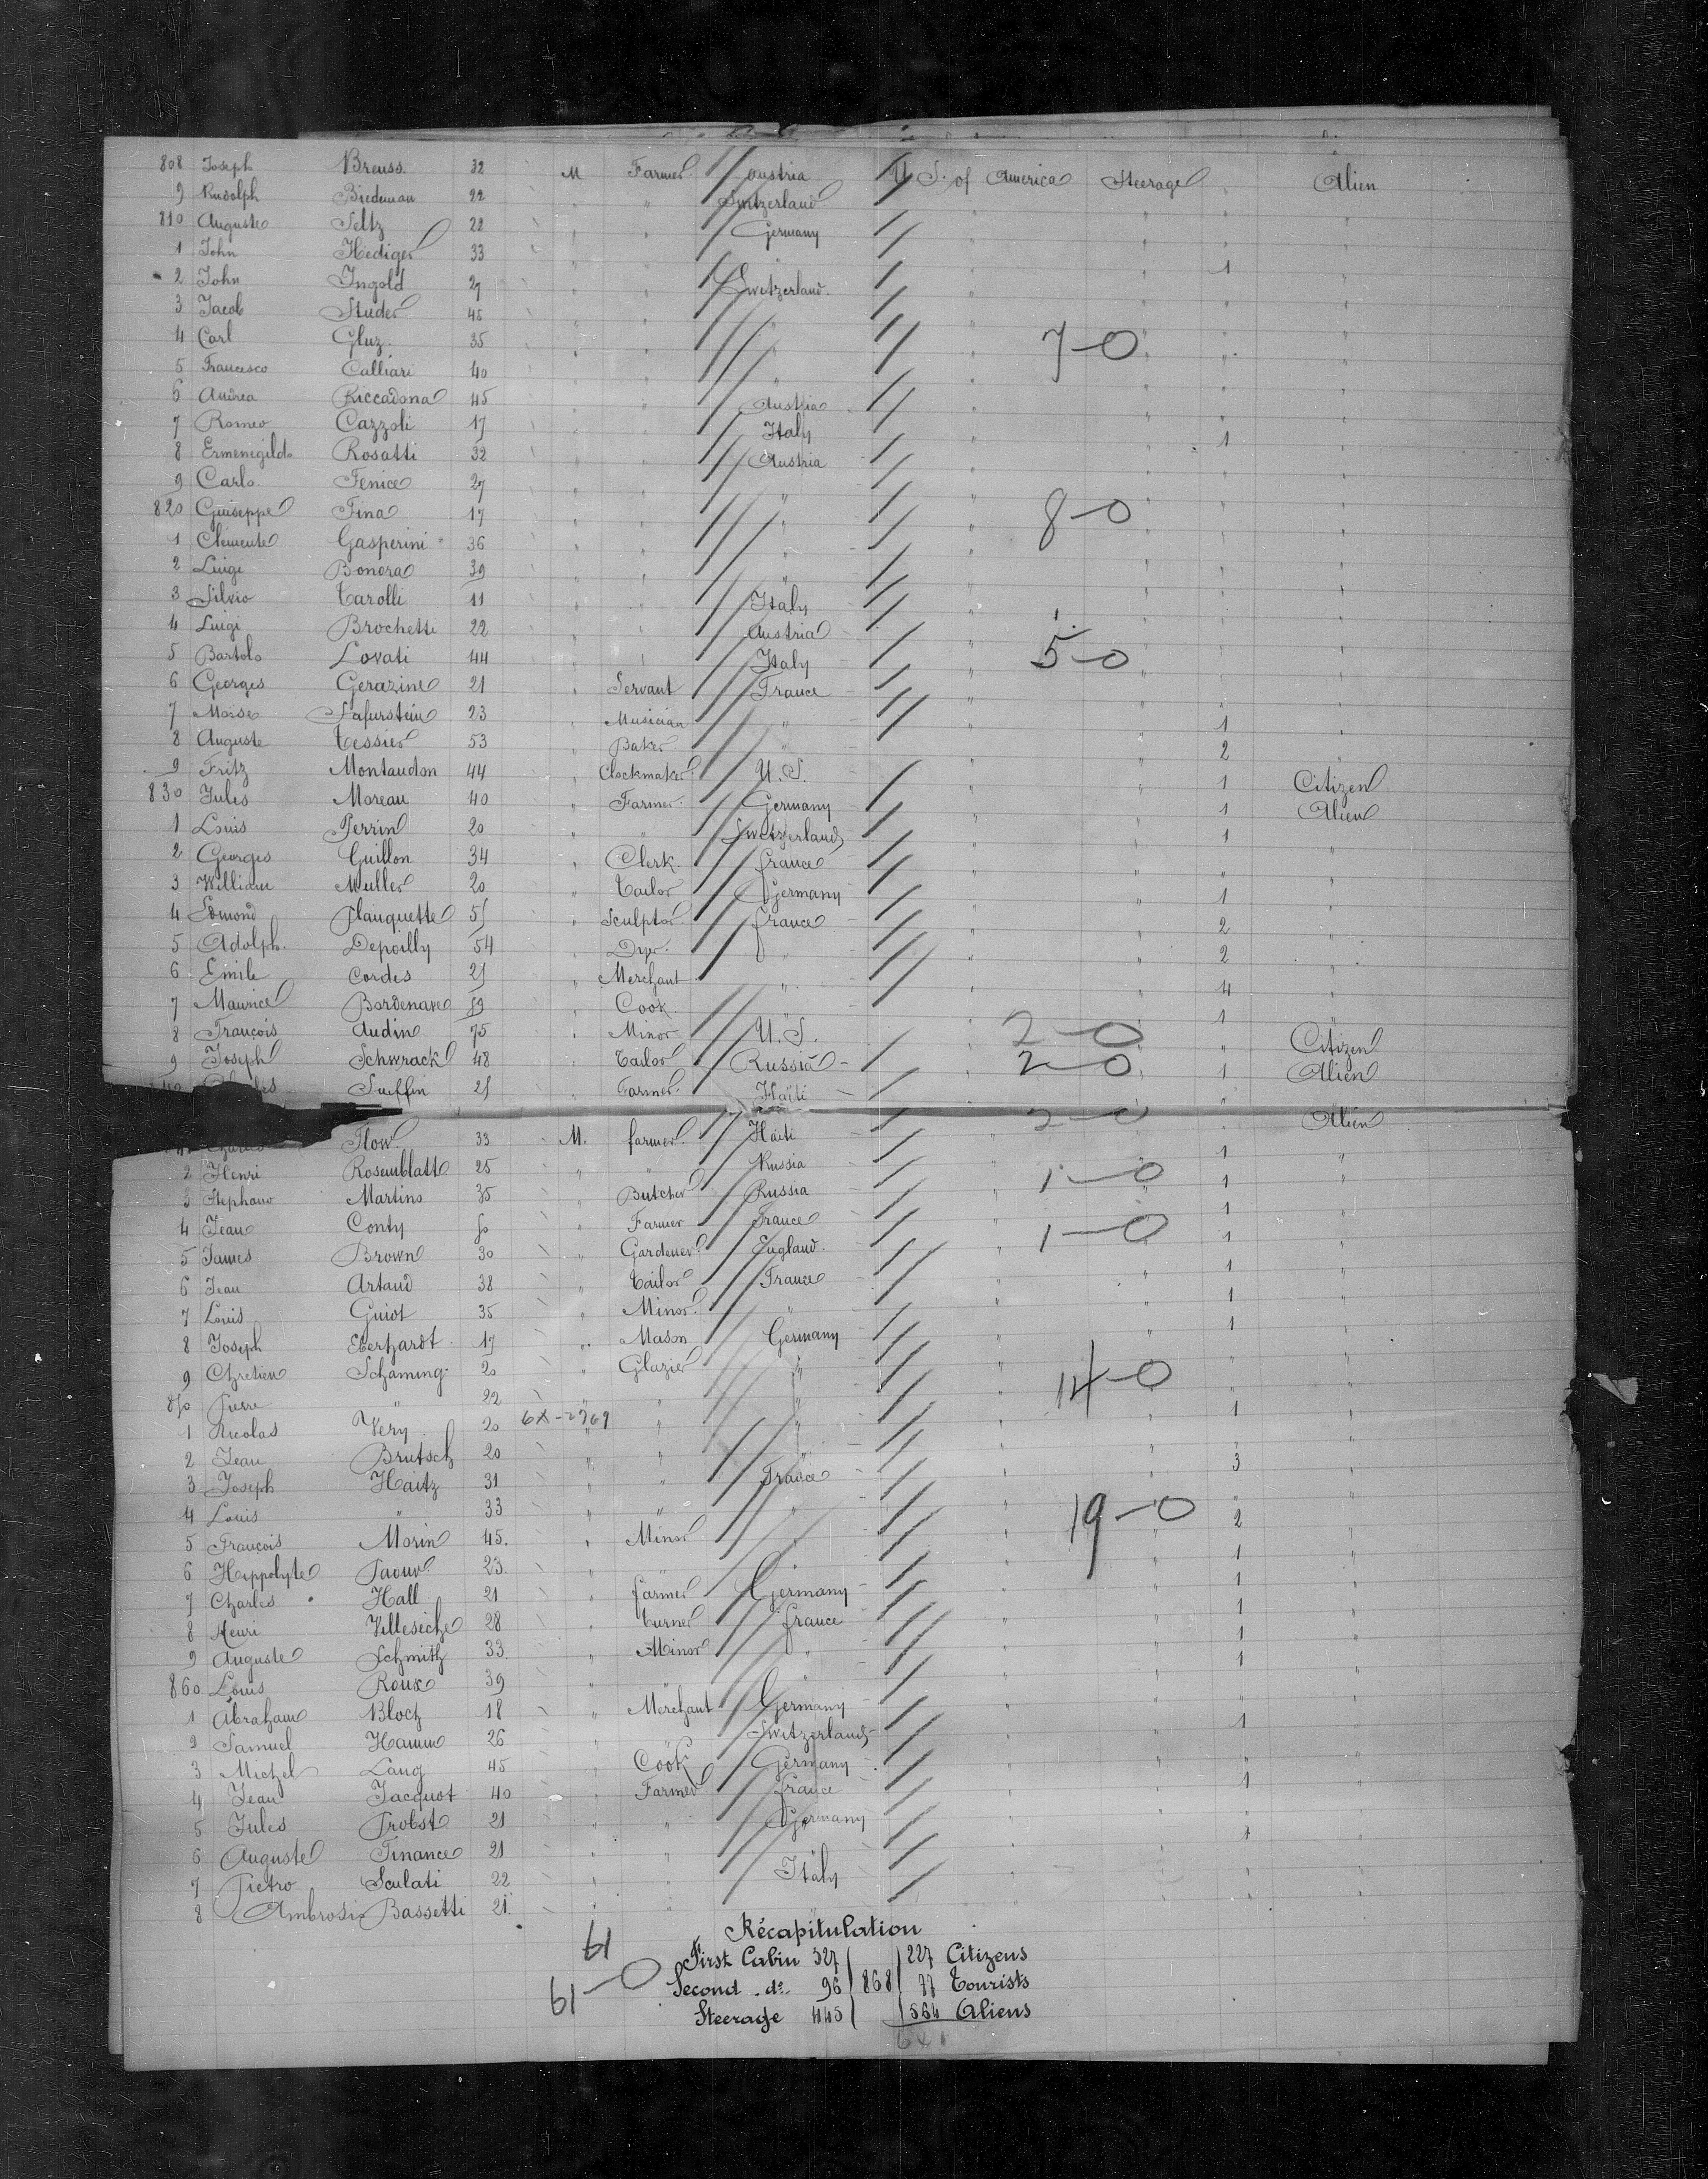 808 Joseph Breuss. 32 M Farmer Austria U. S. of America Steerage Alien
9 Rudolph Biedeman 22 " " Switzerland " " "
810 Auguste Seltz 22 " " Germany " " "
1 John Hediger 33 " " " " 1 "
2 John Ingold 27 " " Switzerland. " " "
3 Jacob Studer 45 " " " " " "
4 Carl Gluz. 35 " " " " " " 7-0
5 Francesco Calliari 40 " " " " " "
6 Andrea Riccadona 45 " " Austria " " "
7 Romeo Cazzoli 17 " " Italy " 1 "
8 Ermenegildo Rosatti 32 " " Austria " " "
9 Carlo. Fenice 27 " " " " " "
820 Guiseppe Tina 17 " " " " " " 8-0
1 Clemente Gasperini 36 " " " " " "
2 Luigi Bonora 39 " " " " " "
3 Silvio Tarolli 11 " " Italy " " "
4 Luigi Brochetti 22 " " Austria " " "
5 Bartolo Lovati 44 " " Italy 5-0 " "
6 Georges Gerazine 21 " Servant France " " "
7 Moise Lafurstein 23 " Musician " " 1 "
8 Auguste Tessier 53 " Baker " " 2 "
9 Fritz Montaudon 44 " Clockmaker U. S. " 1 Citizen
830 Jules Moreau 40 " Farmer. Germany " 1 Alien
1 Louis Perrin 20 " " Switzerland " 1 "
2 Georges Guillon 34 " Clerk. France " " "
3 William Muller 20 " Tailor Germany " 1 "
4 Edmond Planquette 55 " Sculptor France " 2 "
5 Adolph. Depoilly 54 " Dyer. " " 2 "
6 Emile Cordes 25 " Merchant " " 4 "
7 Maurice Bordenave 59 " Cook. " " 1 "
8 François Audin 75 " Minor U. S. 2-0 " Citizen
9 Joseph Schwrack 48 " Tailor Russia 2-0 1 Alien
Suffin 25 " Farmer. Haïti " "
Charles Flow. 33 M. farmer. Haïti 2-0 1 Alien
2 Henri Rosemblatt 25 " " Russia " 1 "
3 Stephano Martins 35 " Butcher Russia 1-0 1 "
4 Jean Conty 50 " Farmer France " 1 "
5 James Brown 30 " Gardener England. 1-0 1 "
6 Jean Artaud 38 " Tailor France " 1 "
7 Louis Guiot 35 " Minor. " " 1 "
8 Joseph Eberhardt 17 " Mason Germany " 1 "
9 Chretien Schaming 20 " Glazier " " " "
850 Pierre " 22 " " " 14-0 " "
1 Nicolas Very 20 6X-2769 " " " 1 "
2 Jean Brutsch 20 " " " " " "
3 Joseph Haitz 31 " " France " 3 "
4 Louis " 33 " " " " " "
5 François Morin 45. " Minor " 19-0 2 "
6 Hippolyte 23. " " " " 1 "
7 Charles Hall 21 " farmer Germany " 1 "
8 Henri Villesiche 28 " Turner France " 1 "
9 Auguste Schmith 33. " Minor " " 1 "
860 Louis Roux 39 " " " " 1 "
1 Abraham Bloch 18 " Merchant Germany " " "
2 Samuel Hamm 26 " " Switzerland " 1 "
3 Michel Lang 45 " Cook Germany " " "
4 Jean Jacquot 40 " Farmer France " 1 "
5 Jules Probst 21 " " Germany " " "
6 Auguste Finance 21 " " " " 1 "
7 Pietro Sculati 22 " " Italy " " "
8 Ambrosio Bassetti 21. " " " " " "
Récapitulation
61
First Cabin 327 227 Citizens
61-0 Second do. 96 868 77 Tourists
Steerage 445 564 Aliens
641